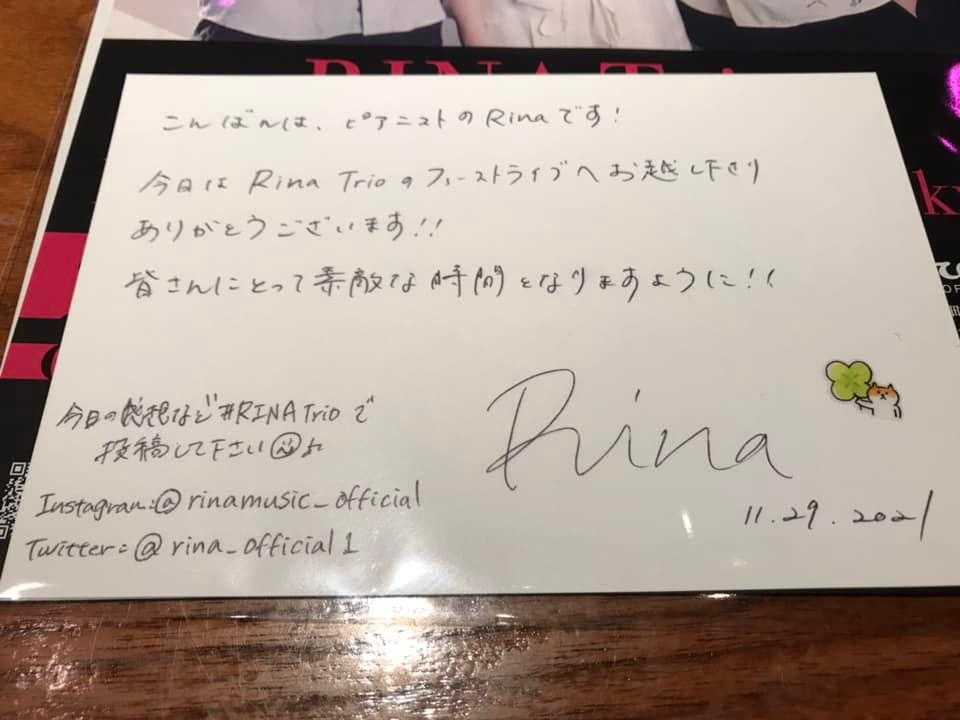 こんばんは、ピアニストのRinaです!
今日は Rina Trioのファーストライブへお越し下さり
ありがとうございます!!
皆さんにとって素敵な時間となりますように!!
今日の感想など#RINA Trioで
投稿して下さい
Instagram:@rinamusic_official
Twitter:@rina_official1
Rina
11.29.2021